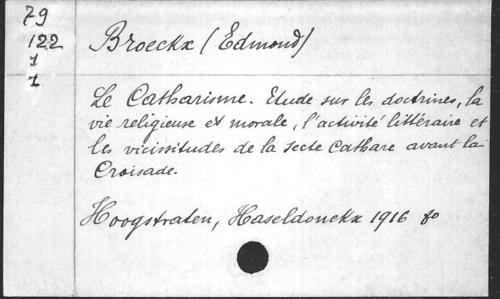 79
122
1
1
Broeckx (Edmond)
Le Catharisme. Etude sur les doctrines, la
vie religieuse et morale, l'activité littéraire et
les vicissitudes de la secte Cathare avant la
Croisade.
Hoogstraten, Haseldonckx 1916 8º